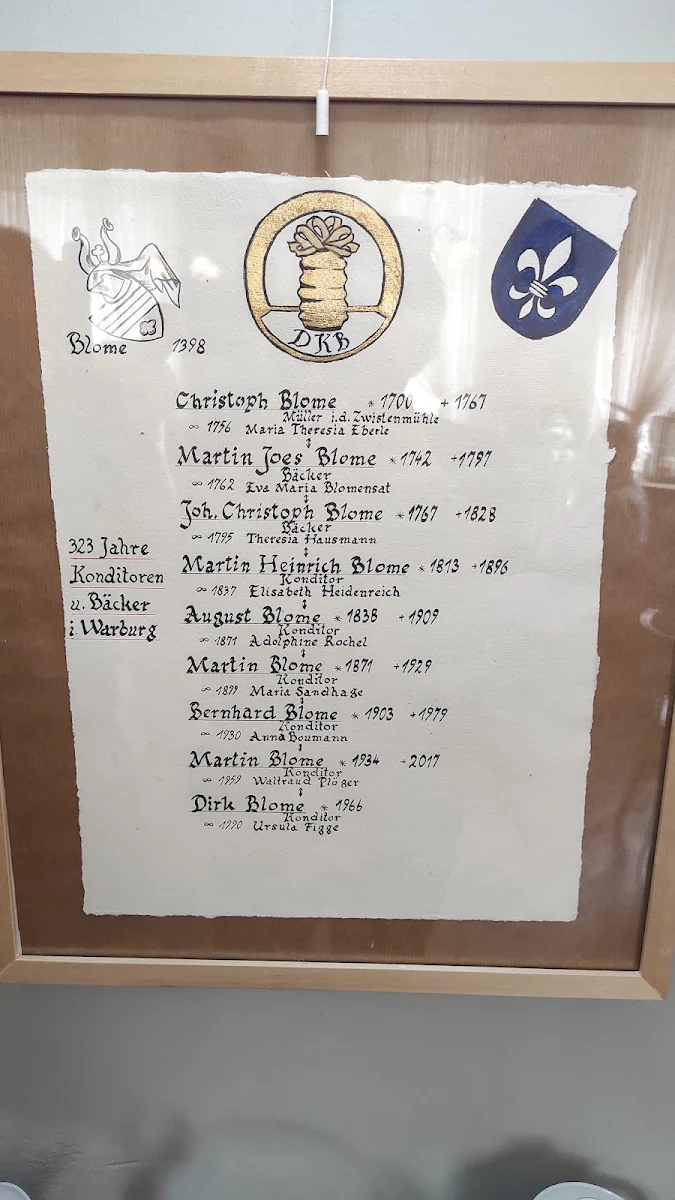 DKB
Blome 1398
Christoph Blome * 1700 + 1767
Müller i.d. Zwistenmühle
∞ 1756 Maria Theresia Eberle
Martin Joes Blome * 1742 +1797
Bäcker
∞ 1762 Eva Maria Blomensat
Joh. Christoph Blome * 1767 +1828
Bäcker
∞ 1795 Theresia Hausmann
323 Jahre
Konditoren
u. Bäcker
i. Warburg
Martin Heinrich Blome * 1813 +1896
Konditor
∞ 1837 Elisabeth Heidenreich
August Blome * 1838 +1909
Konditor
∞ 1871 Adolphine Rochel
Martin Blome * 1871 +1929
Konditor
∞ 1899 Maria Sandhage
Bernhard Blome * 1903 +1979
Konditor
∞ 1930 Anna Boumann
Martin Blome * 1934 +2017
Konditor
∞ 1959 Waltraud Plöger
Dirk Blome * 1966
Konditor
∞ 1990 Ursula Figge